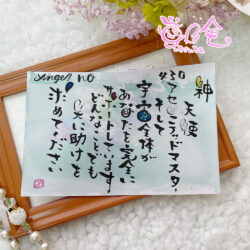 神
天使
そして
アセンデッドマスター、
宇宙全体が
あなたを完全に
サポートしています
どんなことでも
天に助けを
求めてください